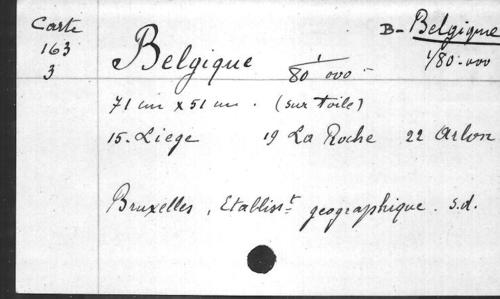 Carte
163
3
B- Belgique
1/80.000
Belgique 1/80 000
71 cm x 51 cm. (sur toile)
15. Liege 19 La Roche 22 Arlon
Bruxelles, Etablisst géographique. s.d.